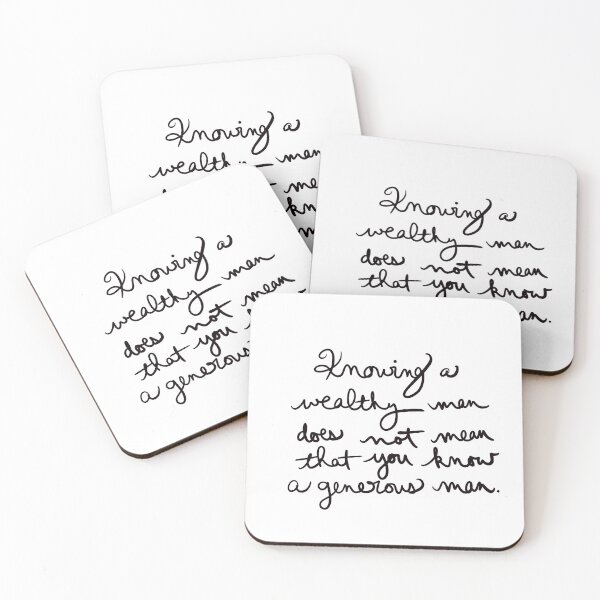 Knowing a
wealthy man
Knowing a
wealthy man
does not mean
that you know
Knowing a
wealthy man
does not mean
that you
a generous
Knowing a
wealthy man
does not mean
that you know
a generous man.